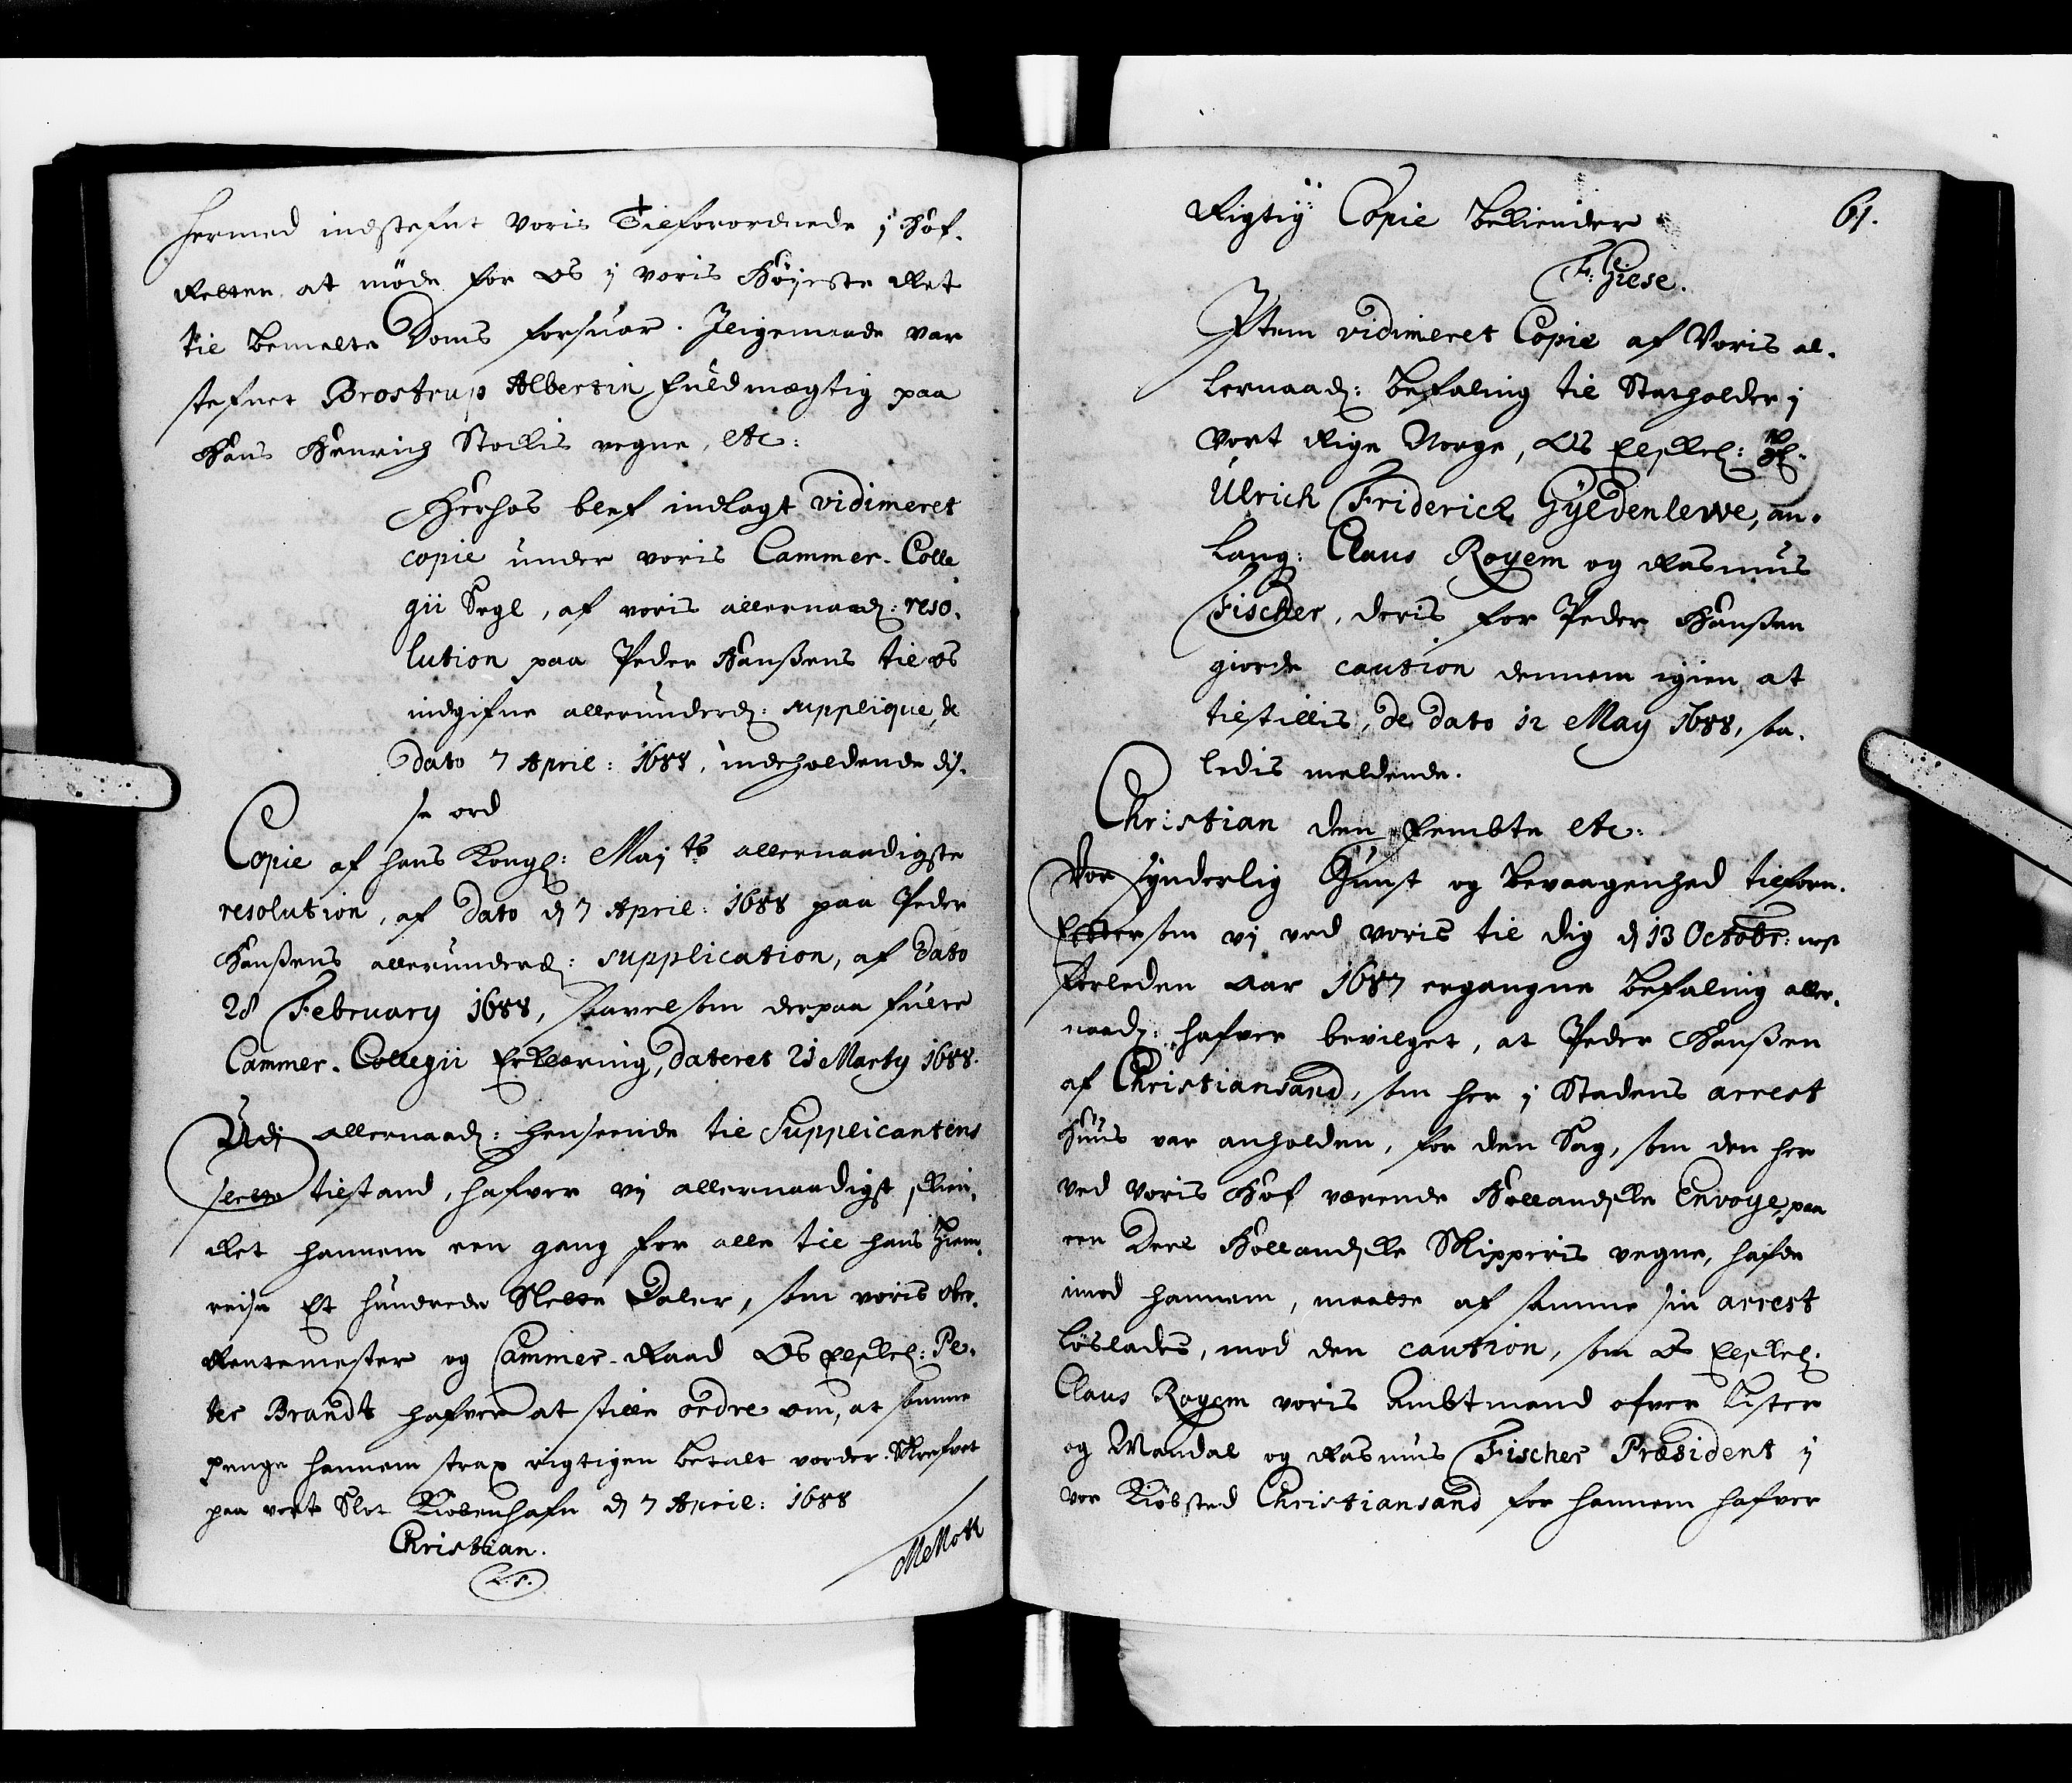 hermed indstefnt Voris Tilforordnede j Hof-
Retten at möde for Os ÿ voris Höÿeste Ret
til bemelte Doms forsuar. Jligemaade var
stefnet Brostrup Albertin fuldmægtig paa
Hans Henrich Stockis vegne, etc:
Herhos blef indlagt vidimeret
copie under voris Cammer-Colle
gii Segl, af voris allernaad: reso-
lution paa Peder Hanßens til os
indgifne allerunderd: supplique, de
dato 7 April: 1688, indeholdende dis-
se ord
Copie af hans Kongl: Maj tz allernaadigste
resolution, af dato d 7 April: 1688 paa Peder
Hanßens allerunderd: supplication, af dato
28 February 1688, saavelsom derpaa fulte
Cammer-Collegii Erklæring, dateret 21 Marty 1688.
Udj allernaad: henseende til Supplicantens
slette tilstand, hafver vij allernaadigst skien-
ket hannem een gang for alle til hans hiem-
reise Et hundrede Slette Daler, som voris Ober-
Rentemester og Cammer-Raad Os Elskel: Pe-
ter Brandt hafver at stille ordre om, at samme
penge hannem strax rigtigen betalt vorder. Skrefvet
paa vort Slot Kiöbenhafn d 7 April: 1688
Christian.
L.S.
MMoth
Rigtig Copie bekiender
61.
F: Giese.
Item vidimeret Copie af Voris al-
lernaad: befaling til Statholder j
Vort Rige Norge, Os Elskel: H:
Ulrich Friderich Gÿldenlewe, an-
lang: Claus Royem og Rasmus
Fischer, deris for Peder Hanßen
giorde caution dennem igien at
tilstillis, de dato 12 May 1688, saa-
ledis meldende.
Christian den Fembte etc:
Vor synderlig Gunst og bevaagenhed tilforn.
Eftersom vj ved voris til dig d 13 Octobr: nest
forleden Aar 1687 ergangne befaling aller-
naad: hafver bevilget, at Peder Hanßen
af Christiansand, som her j Stadens arrest
huus var anholden, for den Sag, som den her
ved Voris Hof værende Hollandske Envoye paa
een Deel Hollandske Skipperis vegne, hafde
imod hannem, maatte af samme sin arrest
löslades, mod den caution, som Os Elskel:
Claus Royem voris Ambtmand ofver Lister
og Mandal og Rasmus Fischer Præsident ÿ
vor Kiöbsted Christiansand for hannem hafver